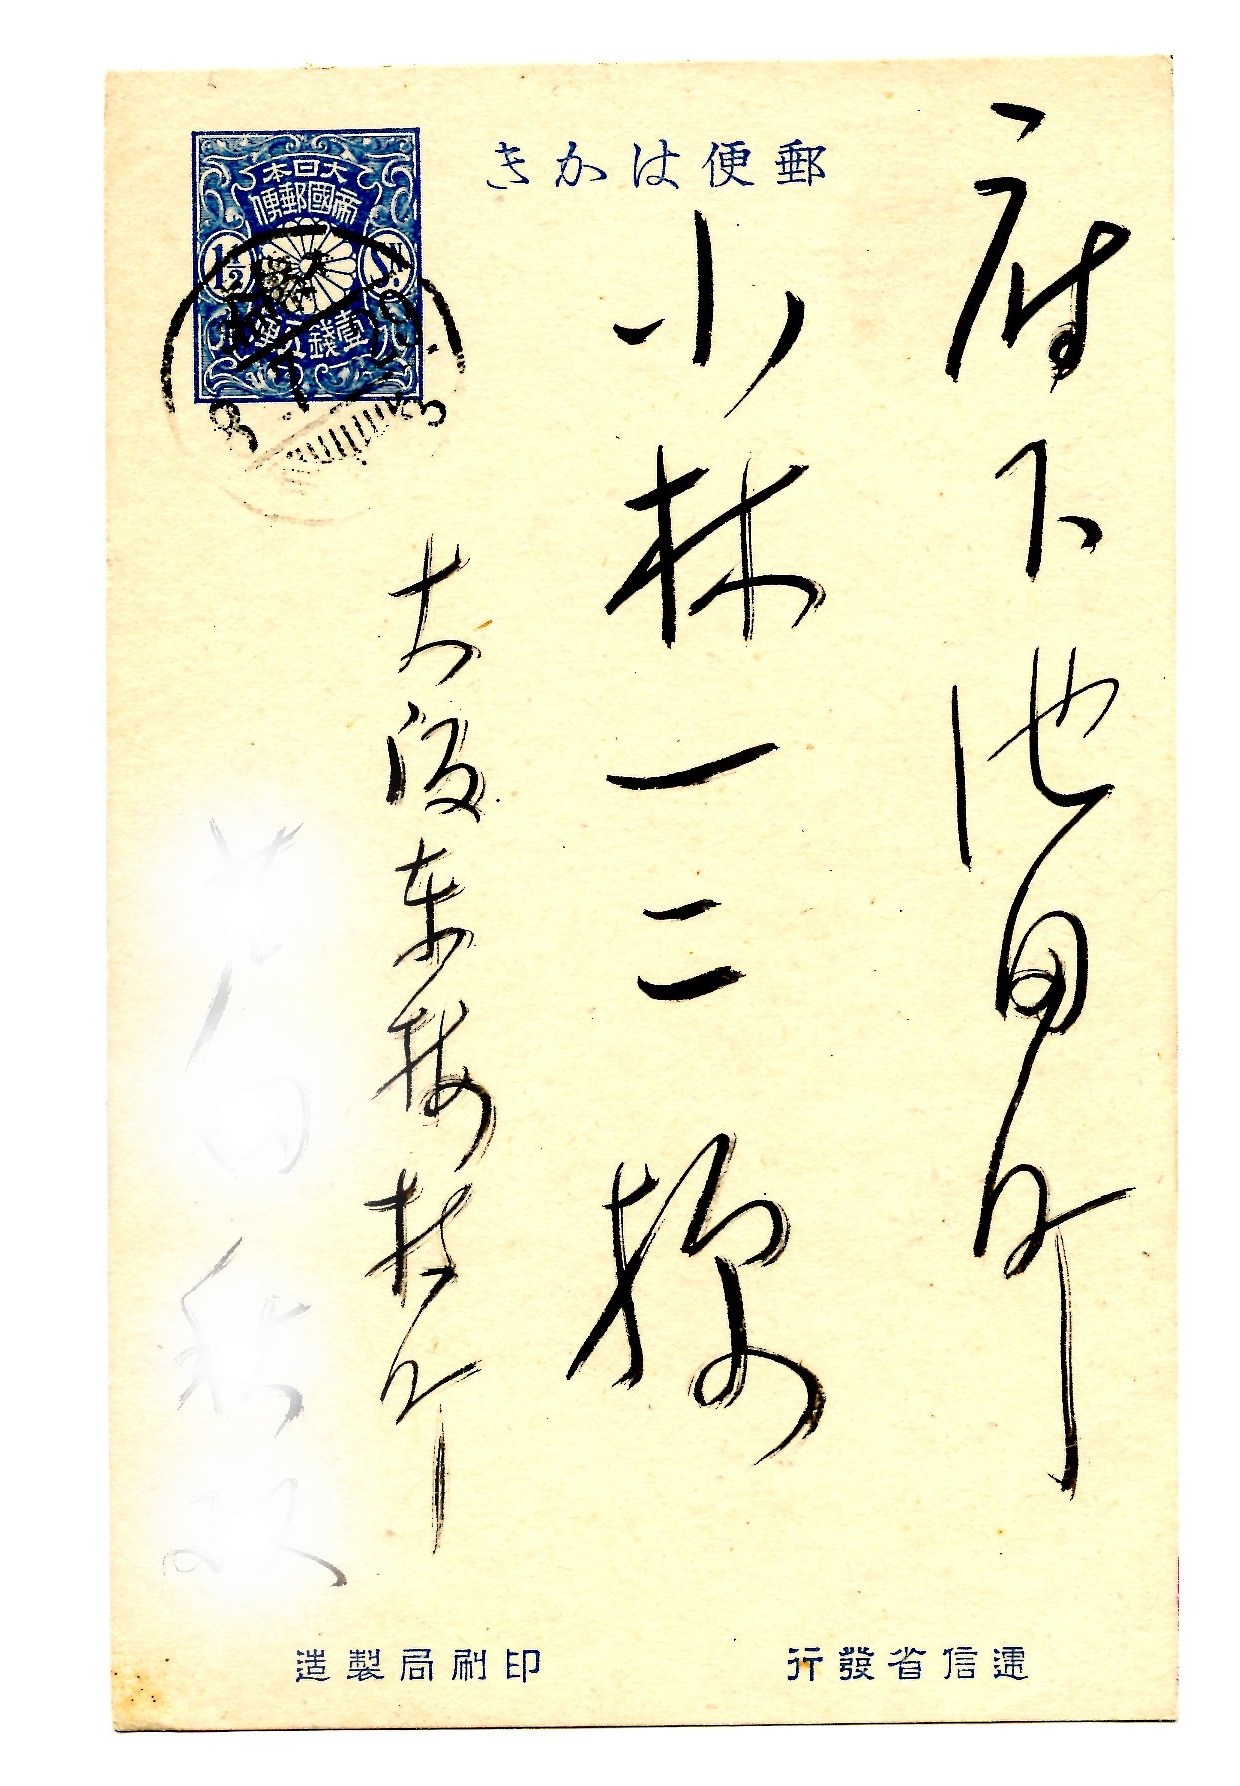 郵便はかき
大日本
帝國郵便
1½ Sn.
壹錢五厘
府下池田町
小林一三様
大阪東梅枝町
遞信省發行
印刷局製造